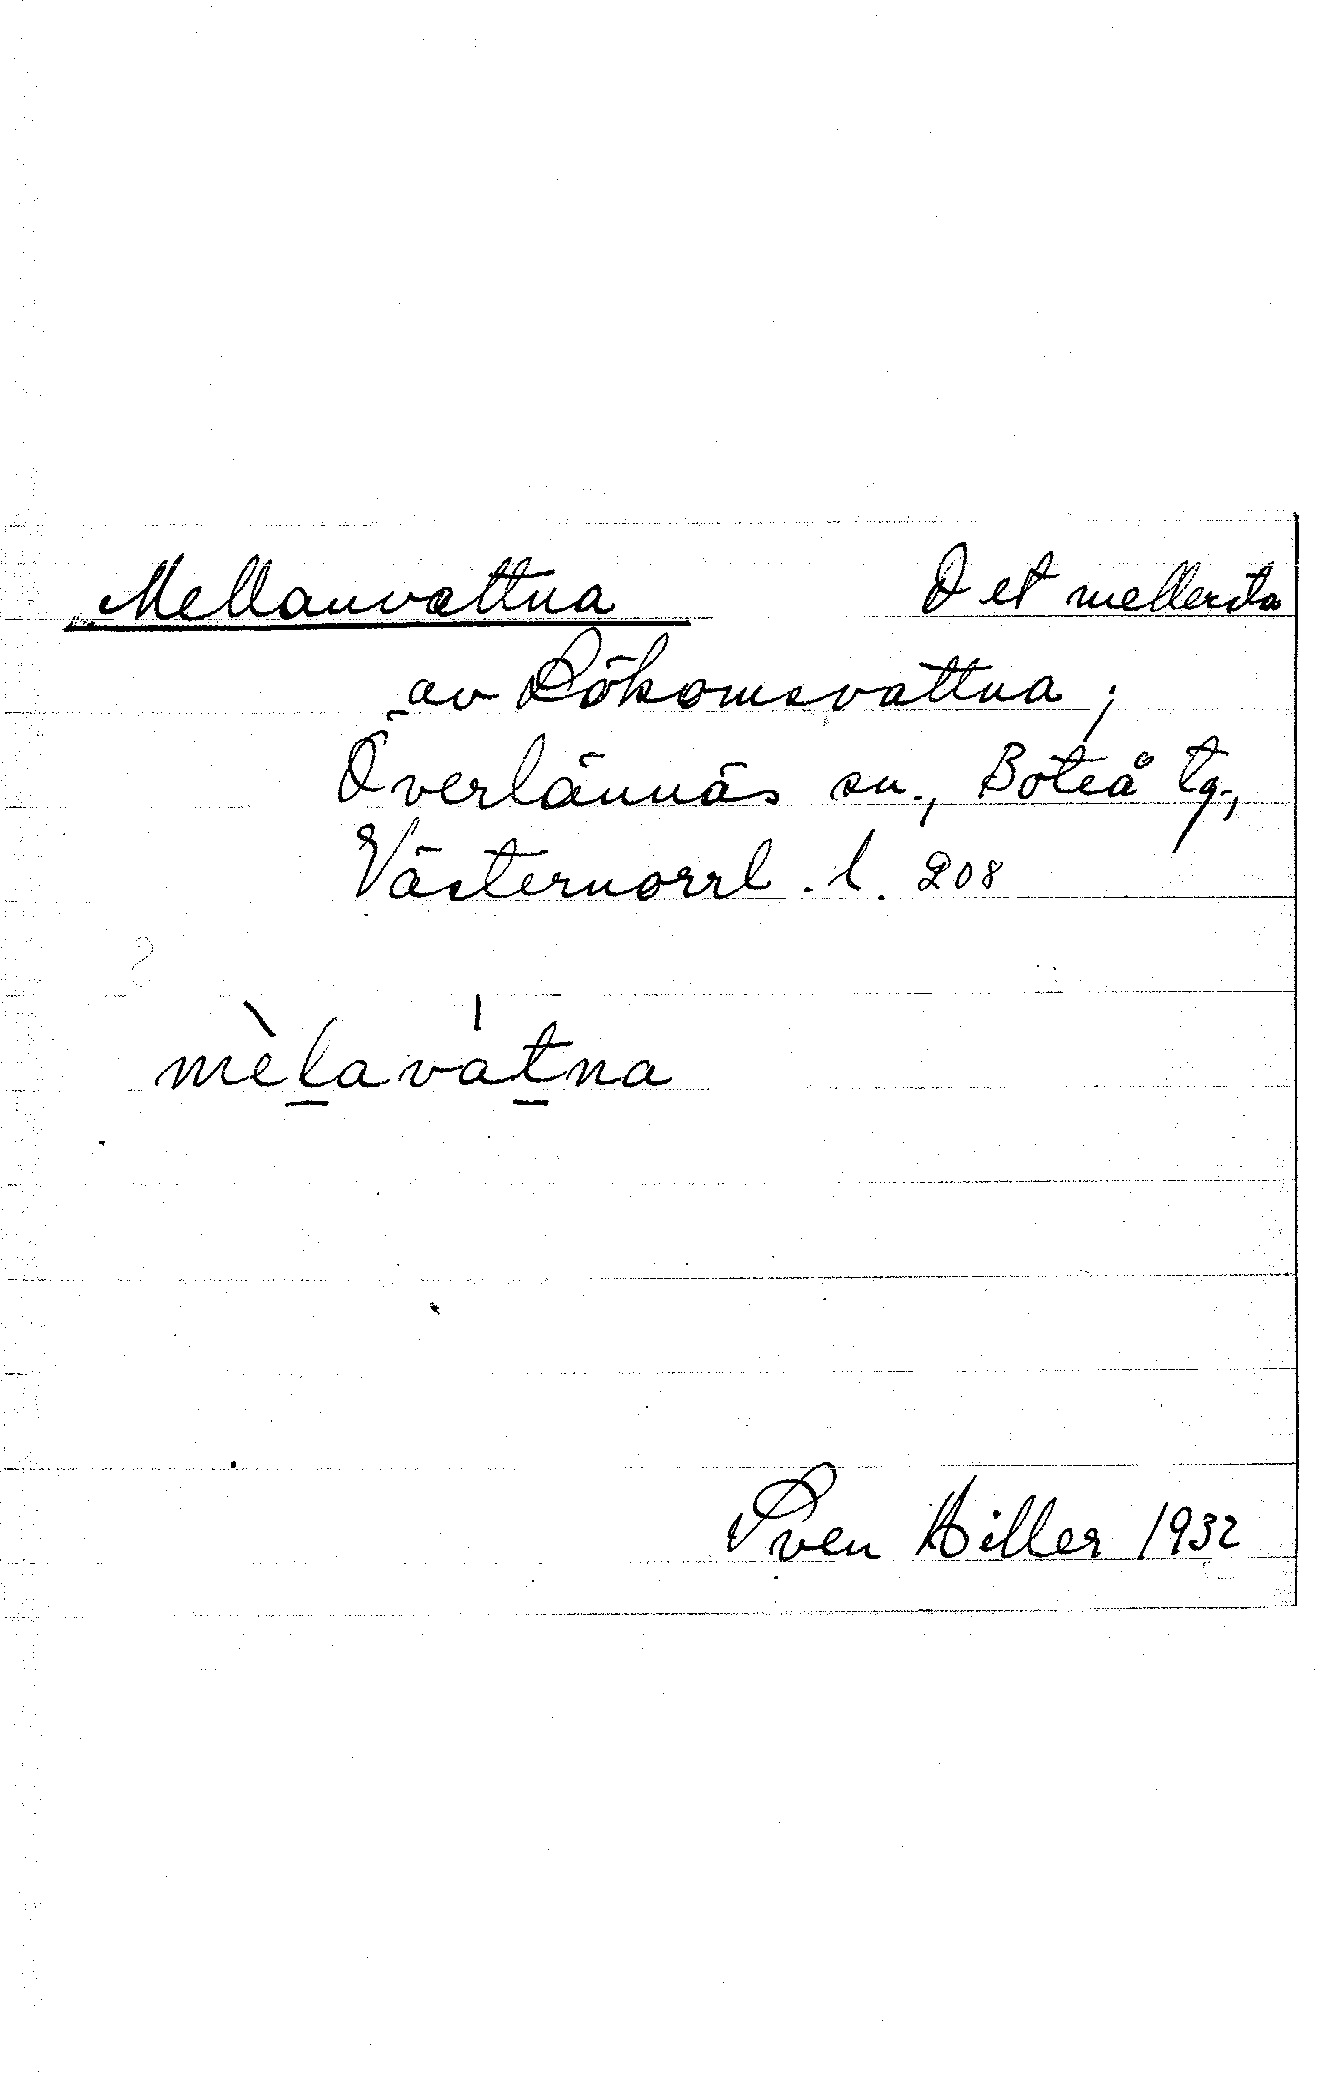 Mellanvattna Det mellersta
av Lökomsvattna;
Överlännäs sn., Boteå tg.,
Västernorrl. l. 208
mèlavátna
Sven Hiller 1932